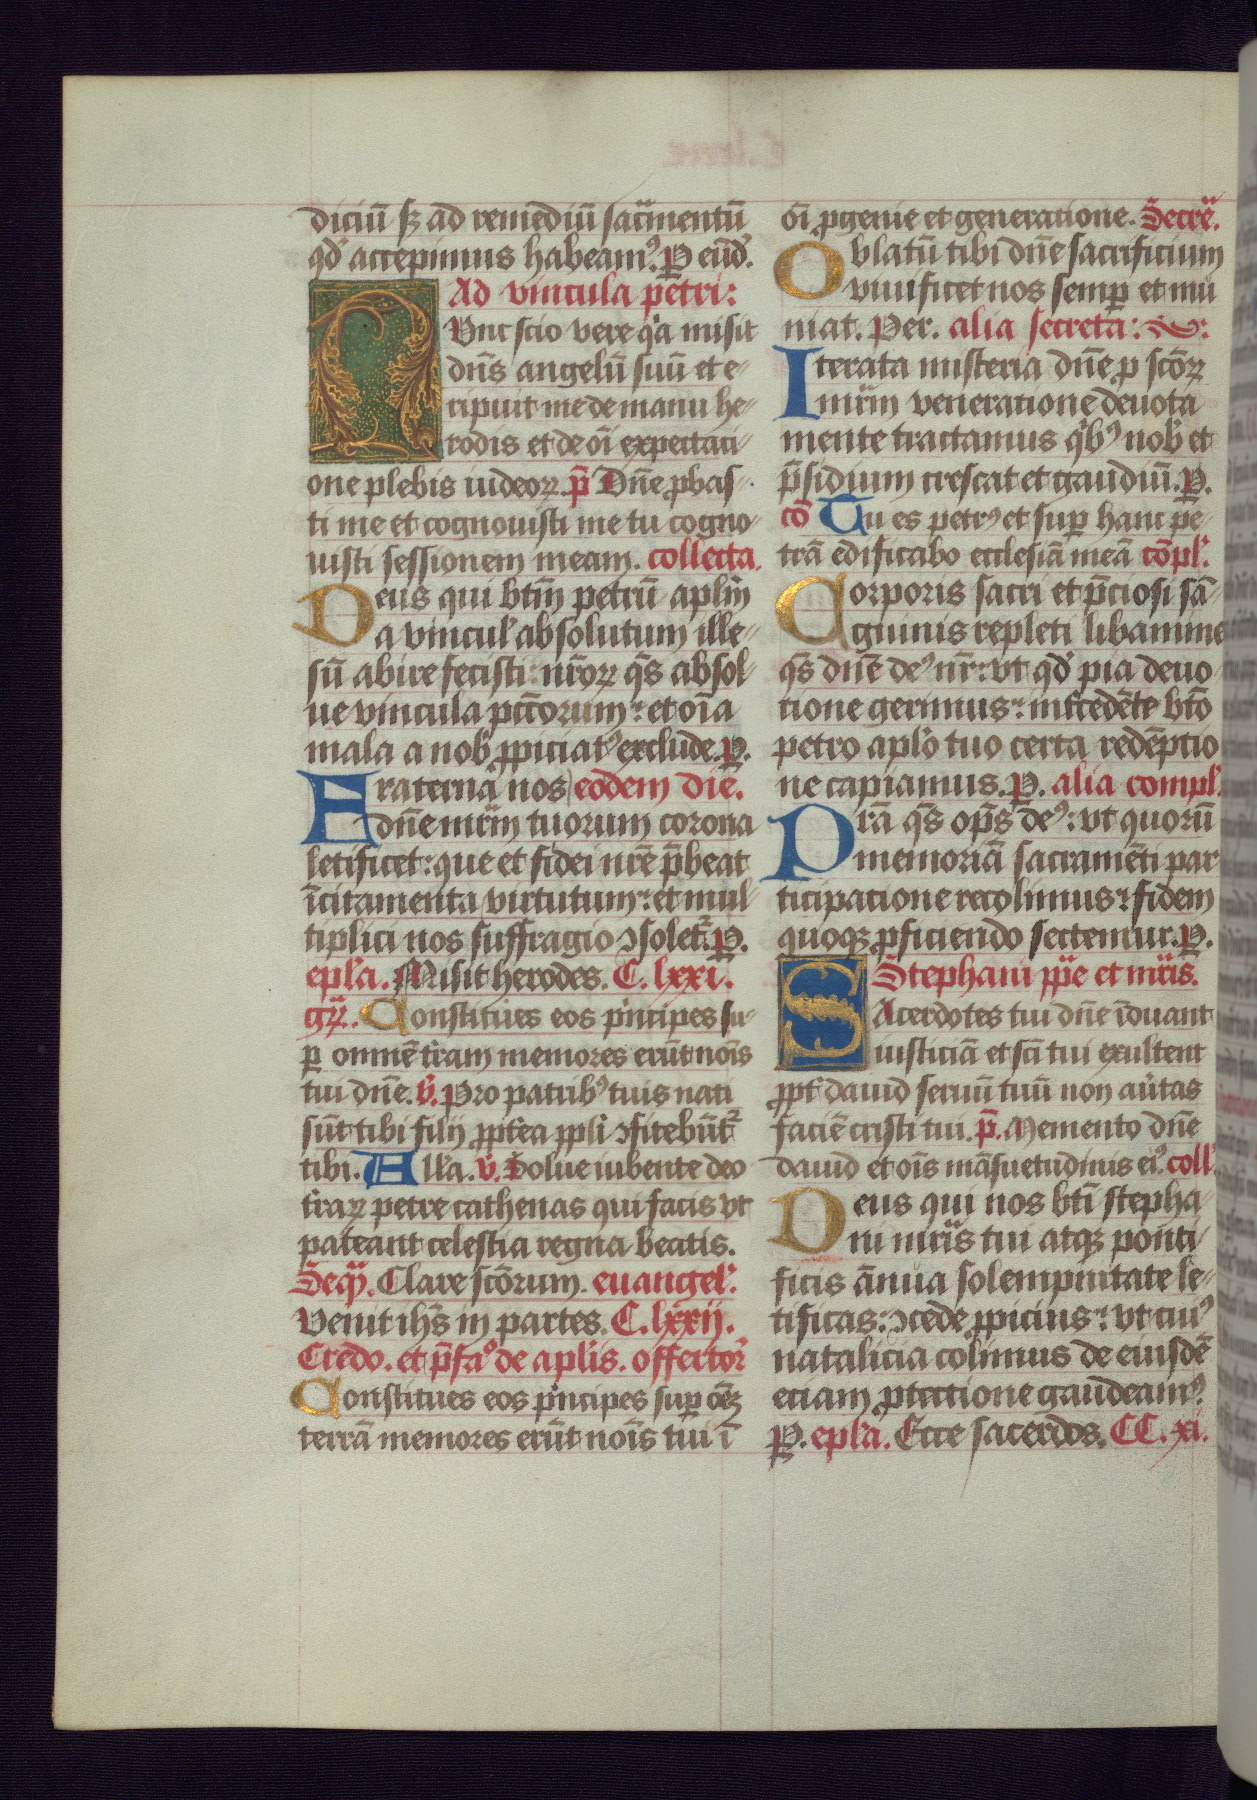 diciū sꝫ ad remediū sac̄mentū
qđ accepimus habeamꝰ. P eūd̓.
Ad vincula petri:
NVnc scio vere q̓a misit
dn̄s angelū suū et e-
ripuit me de manu he-
rodis et de oī expectaci-
one plebis iudeoꝝ. p̄ Dn̄e ꝓbas-
ti me et cognouisti me tu cogno-
uisti sessionem meam. collecta.
Deus qui btm̄ petrū aplm̄
a vincul̓ absolutum ille-
sū abire fecisti: nr̄oꝝ q̄s absol-
ue vincula pcc̄orum: et oīa
mala a nob̓ ꝓpiciatꝰ exclude. P.
Fraterna nos eodem die.
dn̄e mr̄m tuorum corona
letificet: que et fidei nr̄e p̄beat
īcitamenta virtutum: et mul-
tiplici nos suffragio ↄsolet̄. P.
epl̓a. Misit herodes. C. lxxi.
gr̄. Constitues eos p̓ncipes su-
ꝑ omnē tr̓am memores erūt nōis
tui dn̄e. v̓. Pro patribꝰ tuis nati
sūt tibi filij ꝓpt̓ea ppl̓i ↄfitebūt̄
tibi. All̓a. v̓. Solue iubente deo
tr̓aꝝ petre cathenas qui facis vt
pateant celestia regna beatis.
Seq̄. Clare scōrum. euangel̓.
Venit ihs̄ in partes. C. lxxij.
Credo. et p̄faꝰ de apl̓is. offertor̓
Constitues eos p̓ncipes suꝑ oēꝫ
terrā memores erūt nōis tui ī
oī ꝓgenie et generatione. Secre̓.
Oblatū tibi dn̄e sacrificium
viuificet nos semꝑ et mu
niat. Per. alia secreta:
Iterata misteria dn̄e ꝓ scōꝝ
mr̄m veneratione deuota
mente tractamus q̓bꝰ nob̓ et
p̄sidium crescat et gaudiū. P.
cō Tu es petrꝰ et suꝑ hanc pe-
trā edificabo ecclesiā meā cōpl̓.
Corporis sacri et p̄ciosi sā-
guinis repleti libamine
q̄s dn̄e deꝰ nr̄: vt qđ pia deuo-
tione gerimus: int̓cedēte btō
petro apl̓o tuo certa redēptio
ne capiamus. P. alia compl̓.
Prā q̄s op̄s deꝰ: vt quorū
memoriā sacramēti par
ticipatione recolimus: fidem
quoqꝫ ꝓficiendo sectemur. P.
Stephani ppe et mr̄is.
SAcerdotes tui dn̄e īduant
iusticiā et sc̄i tui exultent
ꝓpt̓ dauid seruū tuū non au̓tas
faciē cristi tui. p̄. Memento dn̄e
dauid et oīs māsuetudinis eiꝰ. coll̓
Deus qui nos btī stepha-
ni mr̄is tui atqꝫ ponti-
ficis ānua solempnitate le-
tificas: ↄcede ꝓpicius: vt cuiꝰ
natalicia colimus de eiusdē
eciam ꝓtectione gaudeamꝰ.
P. epl̓a. Ecce sacerdos. CC. xi.